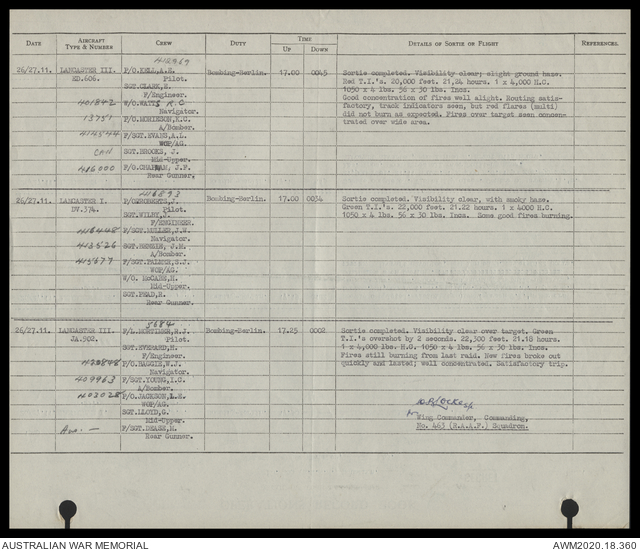 DATE AIRCRAFT TYPE & NUMBER CREW DUTY TIME UP DOWN DETAILS OF SORTIE OR FLIGHT REFERENCES.
26/27.11. LANCASTER III. P/O.KELL,A.H. Bombing-Berlin. 17.00 0045 Sortie completed. Visibility clear; slight ground haze.
ED.606. Pilot. Red T.I.'s. 20,000 feet. 21.24 hours. 1 x 4,000 H.C.
SGT.CLARK,H. 1050 x 4 lbs. 56 x 30 lbs. Incs.
F/Engineer. Good concentration of fires well alight. Routing satis-
401842 W/O.WATTS R.C factory, track indicators seen, but red flares (multi)
Navigator. did not burn as expected. Fires over target seen concen-
13751 P/O.MORIESON,R.C. trated over wide area.
A/Bomber.
414544 F/SGT.EVANS,A.L.
WOP/AG.
CAN SGT.BROOKS, J.
Mid-Upper.
416000 F/O.CHAPMAN, J.F.
Rear Gunner.
416893
26/27.11. LANCASTER I. Bombing-Berlin. 17.00 0034 Sortie completed. Visibility clear, with smoky haze.
DV.374. Pilot. Green T.I.'s. 22,000 feet. 21.22 hours. 1 x 4000 H.C.
1050 x 4 lbs. 56 x 30 lbs. Incs. Some good fires burning.
F/ENGINEER.
418448 F/SGT.MULLER,J.W.
Navigator.
413526 SGT.RENNIE, J.M.
A/Bomber.
415677 F/SGT.PALMER,S.J.
WOP/AG.
W/O. McCABE,H.
Mid-Upper.
SGT.READ,R.
Rear Gunner.
5684
26/27.11. LANCASTER III. F/L.MORTIMER,R.J. Bombing-Berlin. 17.25 0002 Sortie completed. Visibility clear over target. Green
JA.902. Pilot. T.I.'s overshot by 2 seconds. 22,300 feet. 21.18 hours.
SGT.EVERARD,H. 1 x 4,000 lbs. H.C. 1050 x 4 lbs. 56 x 30 lbs. Incs.
F/Engineer. Fires still burning from last raid. New fires broke out
420848 F/O.HAGGIE,W.J. quickly and lasted; well concentrated. Satisfactory trip.
Navigator.
409963 F/SGT.YOUNG,I.C.
A/Bomber.
403028 P/O.JACKSON,L.H.
WOP/AG.
SGT.LLOYD,G.
Mid-Upper.
Aus. — F/SGT.DEASE,M.
Rear Gunner.
Wing Commander, Commanding,
No. 463 (R.A.A.F.) Squadron.
AUSTRALIAN WAR MEMORIAL AWM2020.18.360